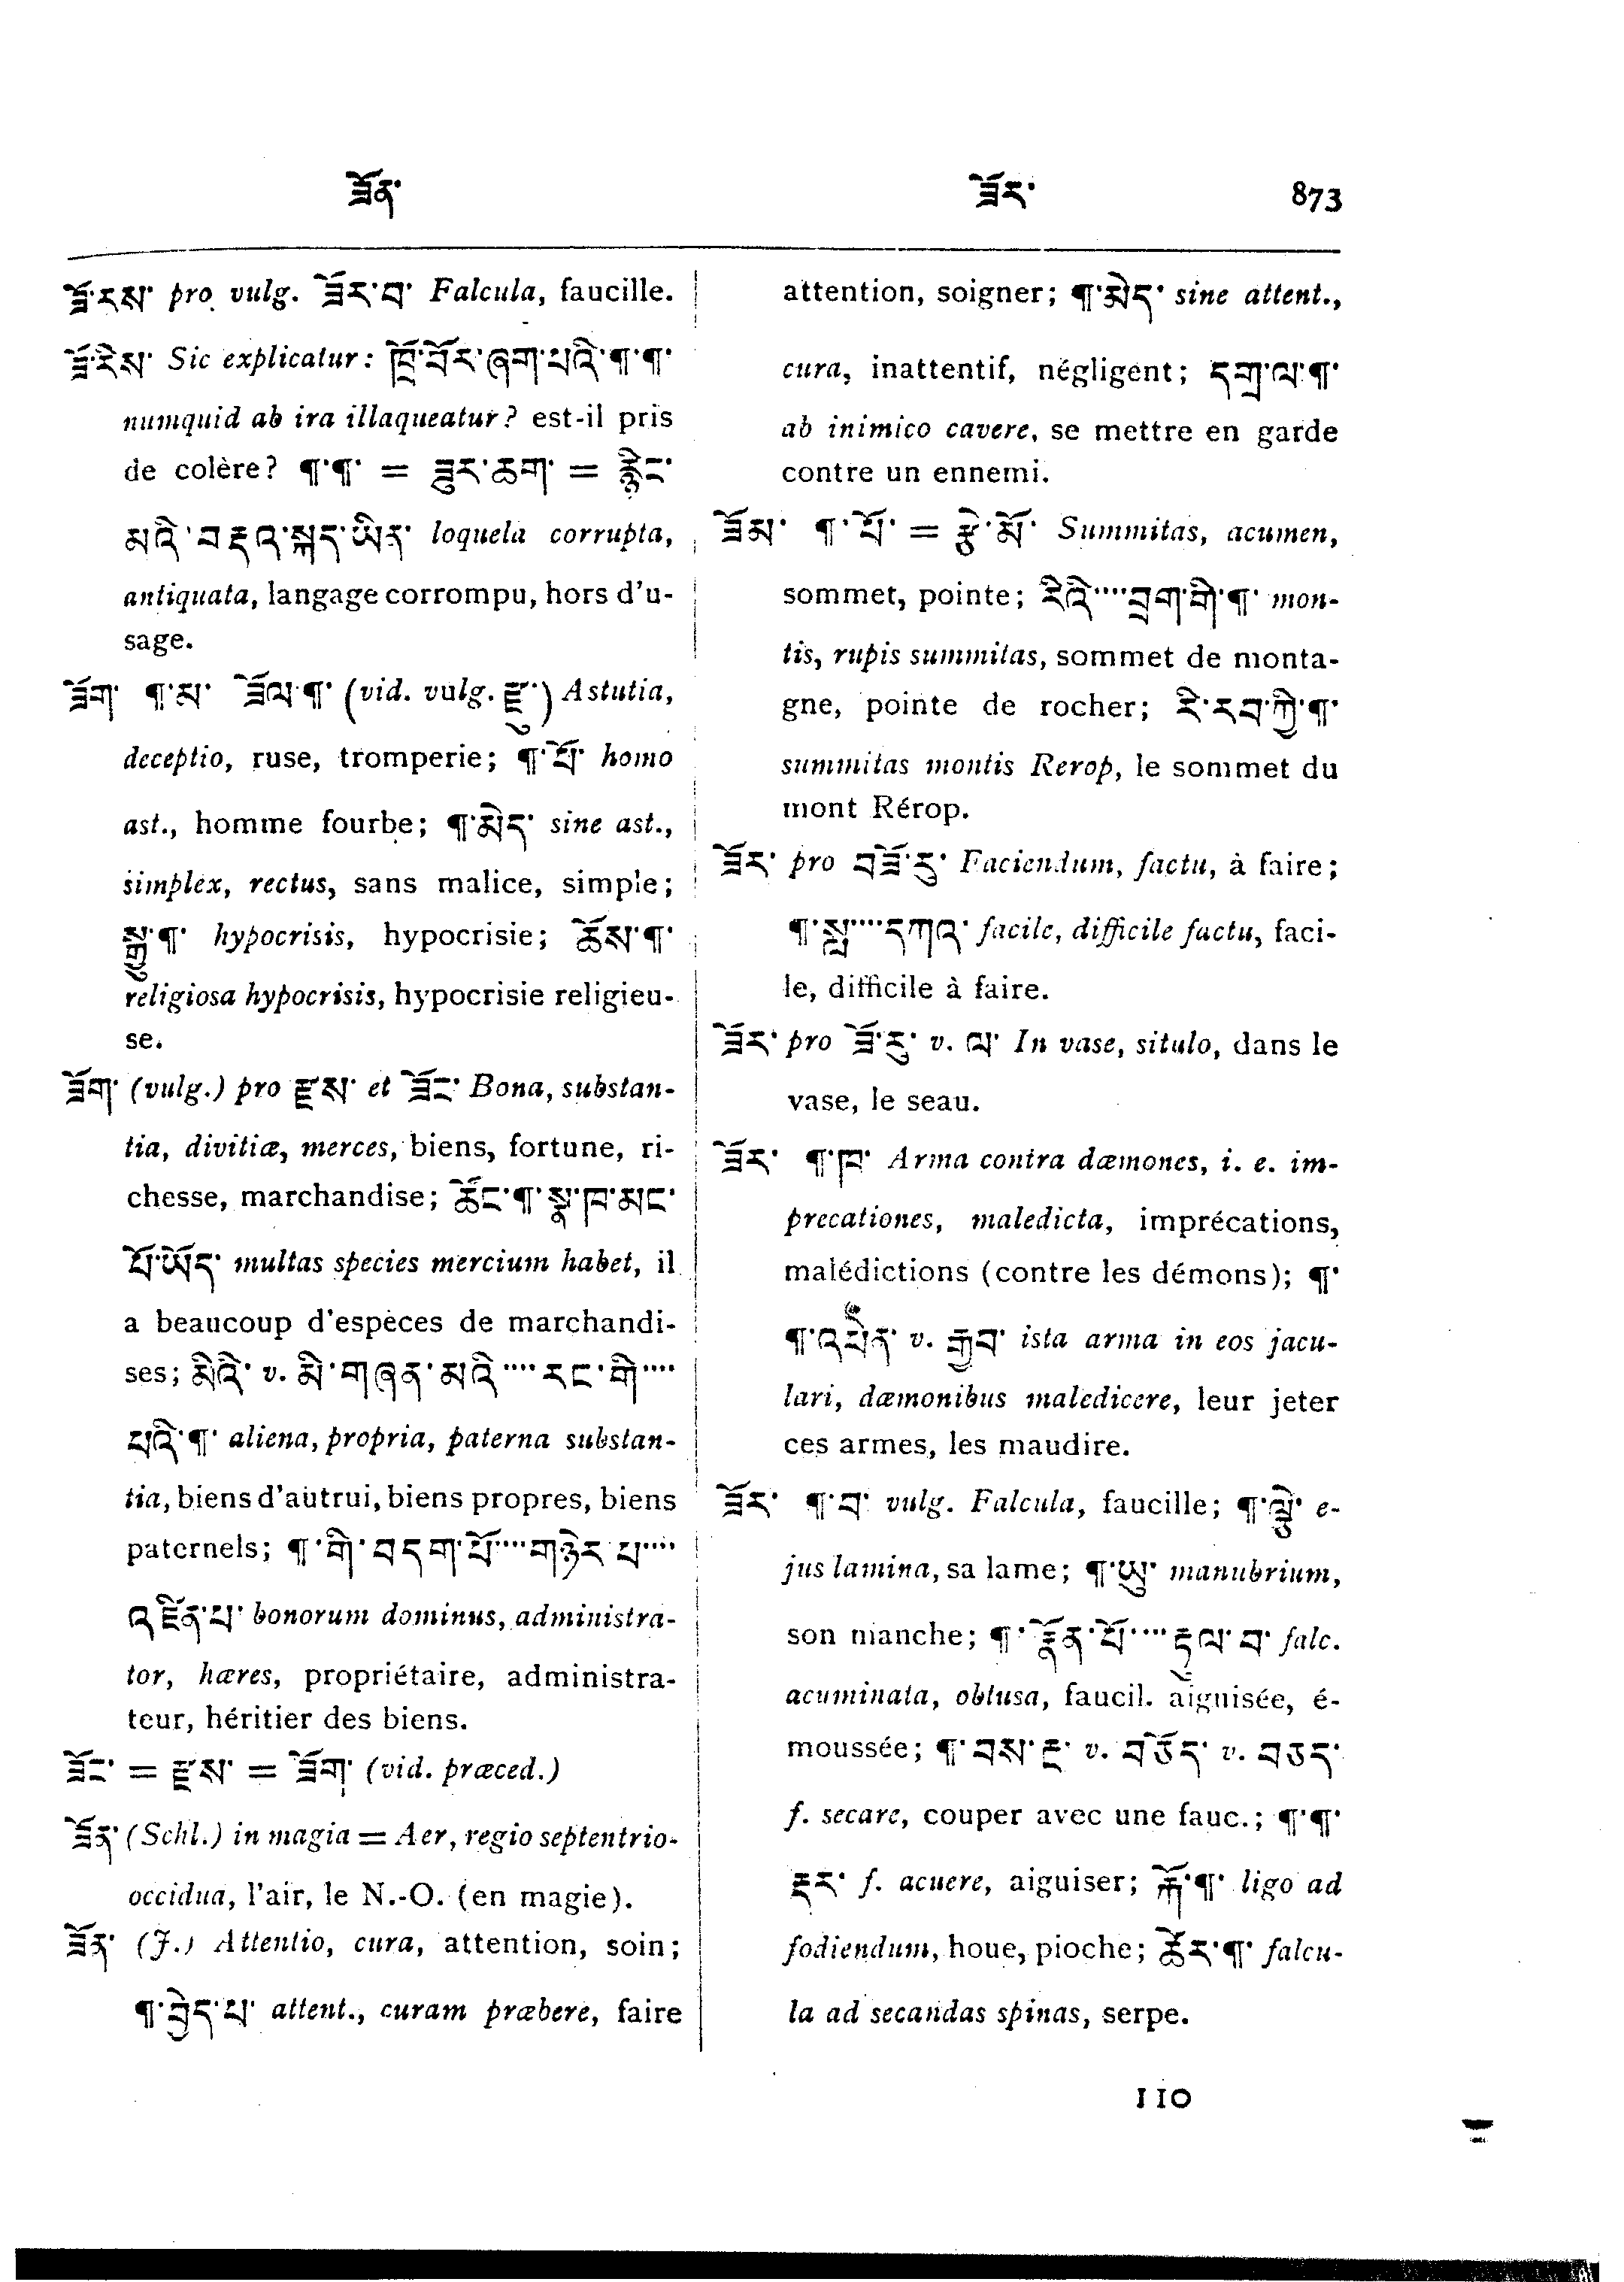 ཟོན་
ཟོར་ 873
ཟོ་རས་ pro vulg. ཟོར་བ་ Falcula, faucille.
ཟོ་རེས་ Sic explicatur: ཁྲོ་བོར་ཞག་པའི་¶་¶་
numquid ab ira illaqueatur? est-il pris
de colère? ¶་¶་ = ཟུར་ཆག་ = རྙིང་
མའི་བརྡའ་སྐད་ཡིན་ loquela corrupta,
antiquata, langage corrompu, hors d'u-
sage.
ཟོག་ ¶་མ་ ཟོལ་¶་ (vid. vulg. རྫུ་) Astutia,
deceptio, ruse, tromperie; ¶་པོ་ homo
ast., homme fourbe; ¶་མེད་ sine ast.,
simplex, rectus, sans malice, simple;
སྒྱུ་¶་ hypocrisis, hypocrisie; ཆོས་¶་
religiosa hypocrisis, hypocrisie religieu-
se.
ཟོག་ (vulg.) pro རྫས་ et ཟོང་ Bona, substan-
tia, divitiæ, merces, biens, fortune, ri-
chesse, marchandise; ཚོང་¶་སྣ་ཁ་མང་
པོ་ཡོད་ multas species mercium habet, il
a beaucoup d'espèces de marchandi-
ses; མིའི་ v. མི་གཞན་མའི་····རང་གི་····
པའི་¶་ aliena, propria, paterna substan-
tia, biens d'autrui, biens propres, biens
paternels; ¶་གི་བདག་པོ་····གཉེར་པ་····
འཛིན་པ་ bonorum dominus, administra-
tor, hæres, propriétaire, administra-
teur, héritier des biens.
ཟོང་ = རྫས་ = ཟོག་ (vid. præced.)
ཟོན་ (Schl.) in magia = Aer, regio septentrio-
occidua, l'air, le N.-O. (en magie).
ཟོན་ (J.) Attentio, cura, attention, soin;
¶་བྱེད་པ་ attent., curam præbere, faire
attention, soigner; ¶་མེད་ sine attent.,
cura, inattentif, négligent; དགྲ་ལ་¶་
ab inimico cavere, se mettre en garde
contre un ennemi.
ཟོམ་ ¶་པོ་ = རྩེ་མོ་ Summitas, acumen,
sommet, pointe; རིའི་····བྲག་གི་¶་ mon-
tis, rupis summitas, sommet de monta-
gne, pointe de rocher; རི་རབ་ཀྱི་¶་
summitas montis Rerop, le sommet du
mont Rérop.
ཟོར་ pro བཟོ་རུ་ Faciendum, factu, à faire;
¶་སླ་····དཀའ་ facile, difficile factu, faci-
le, difficile à faire.
ཟོར་ pro ཟོ་རུ་ v. ལ་ In vase, situlo, dans le
vase, le seau.
ཟོར་ ¶་ཁ་ Arma contra dæmones, i. e. im-
precationes, maledicta, imprécations,
malédictions (contre les démons); ¶་
¶་འཕེན་ v. རྒྱབ་ ista arma in eos jacu-
lari, dæmonibus maledicere, leur jeter
ces armes, les maudire.
ཟོར་ ¶་བ་ vulg. Falcula, faucille; ¶་ལྕེ་ e-
jus lamina, sa lame; ¶་ཡུ་ manubrium,
son manche; ¶་རྣོན་པོ་····རྟུལ་བ་ falc.
acuminata, obtusa, faucil. aiguisée, é-
moussée; ¶་བས་རྔ་ v. བཅོད་ v. བཅད་
f. secare, couper avec une fauc.; ¶་¶་
རྡར་ f. acuere, aiguiser; རྐོ་¶་ ligo ad
fodiendum, houe, pioche; ཚེར་¶་ falcu-
la ad secandas spinas, serpe.
110